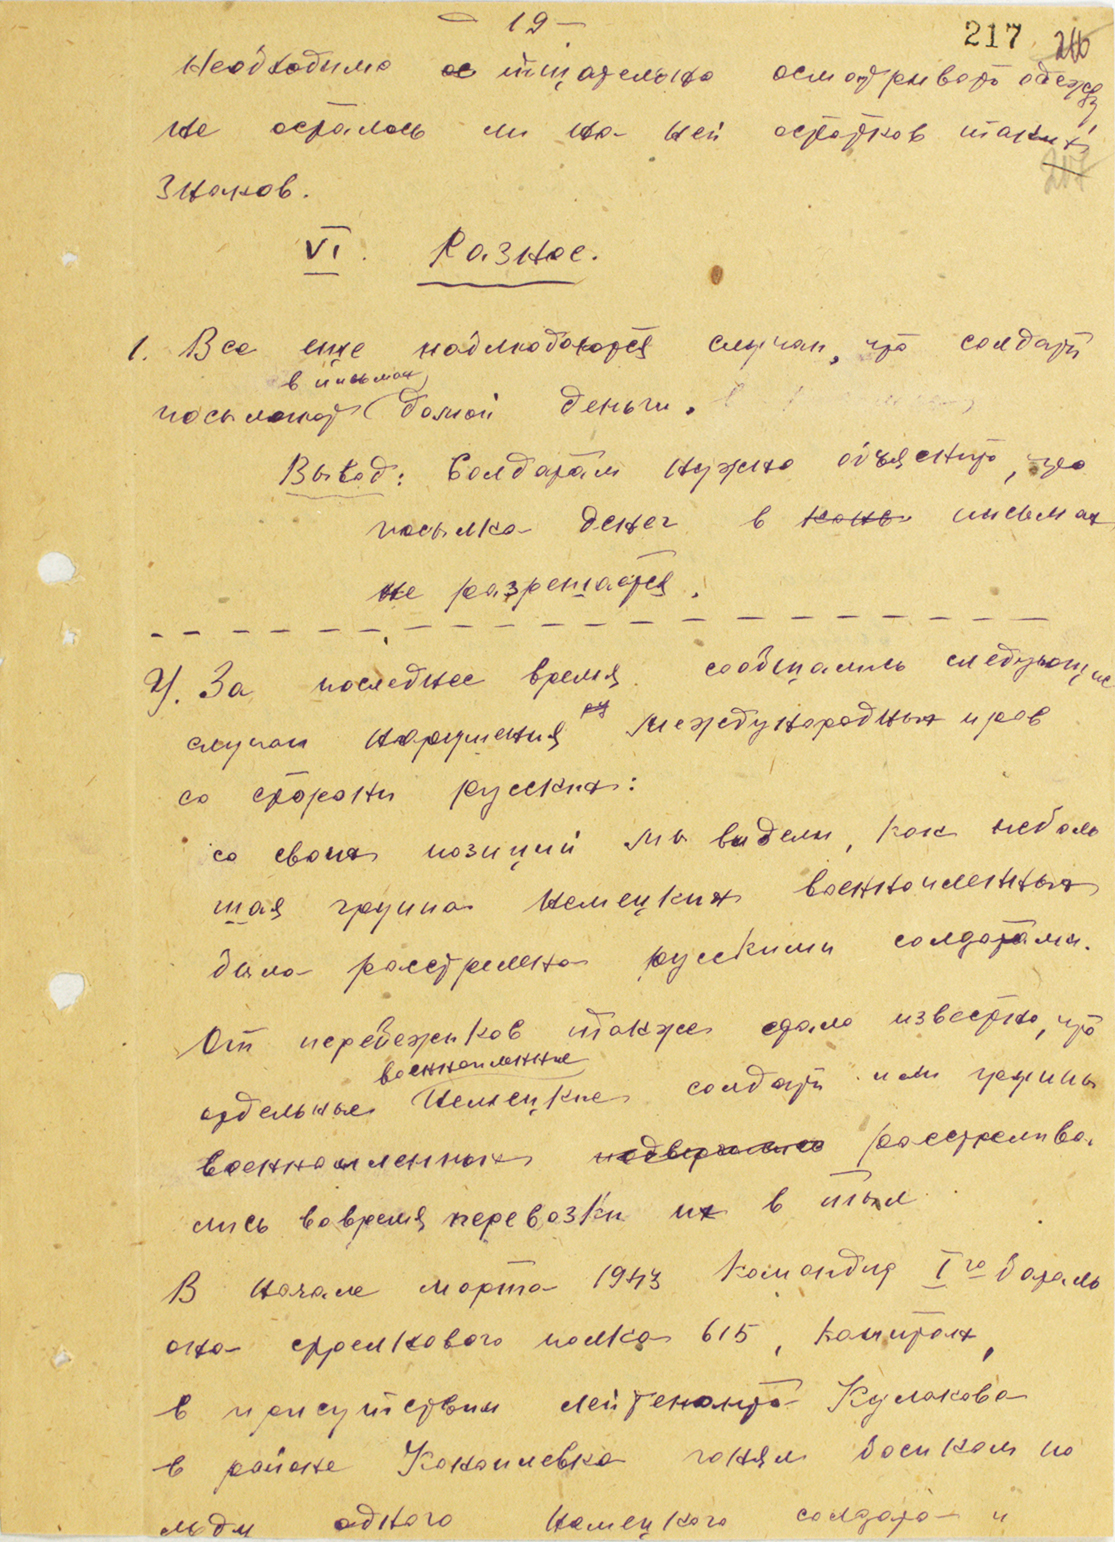 – 19 –
217 216
Необходимо тщательно осматривать одежду,
не осталось ли на ней остатков таких
207
знаков.
VI. Разное.
1. Все еще наблюдаются случаи, что солдаты
в письмах
посылают домой деньги.
Вывод: Солдатам нужно объяснить, что
посылка денег в письмах
не разрешается.
У. За последнее время сообщались следующие
случаи нарушения международных прав
со стороны русских:
со своих позиций мы видели, как неболь
шая группа немецких военнопленных
была расстрелена русскими солдатами.
От перебежиков также стало известно, что
военнопленные
отдельные немецкие солдаты или группы
военнопленных расстрелива.
лись вовремя перевозки их в тыл
В начале марта 1943 командир I го баталь
она стрелкового полка 615, капитан,
в присутствии лейтенанта Кулакова
в районе Коноплевка гонял босиком по
льду одного немецкого солдата и